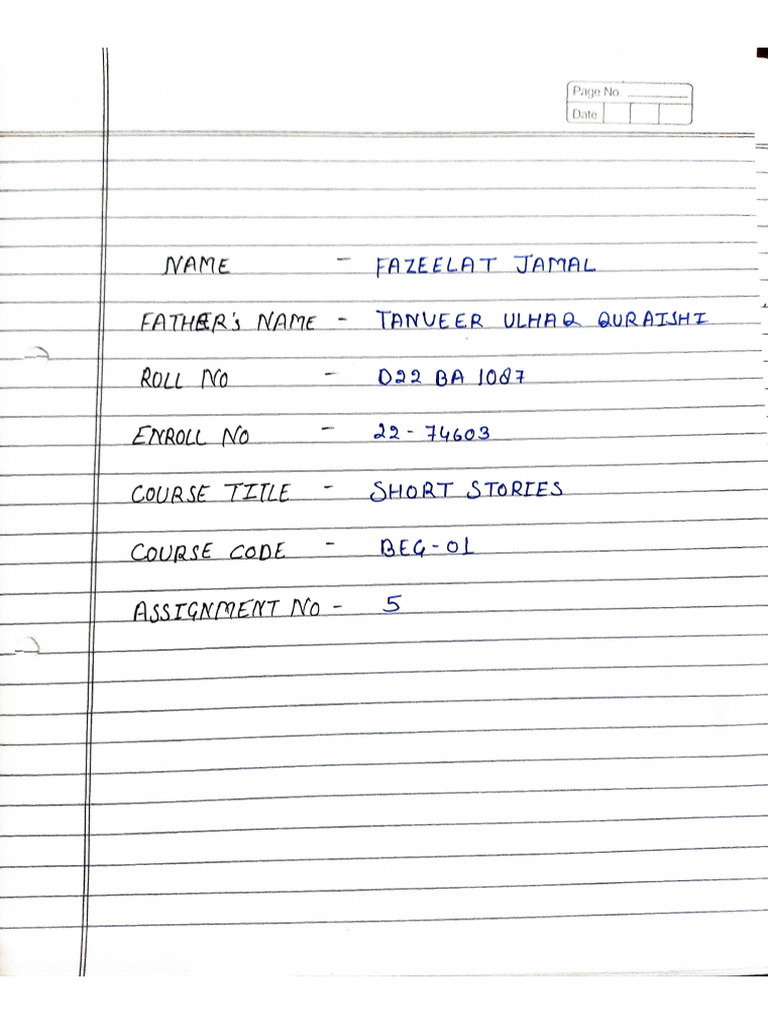 Page No.
Date
NAME - FAZEELAT JAMAL
FATHER'S NAME - TANVEER ULHAQ QURAISHI
ROLL NO - D22 BA 1087
ENROLL NO - 22-74603
COURSE TITLE - SHORT STORIES
COURSE CODE - BEG-01
ASSIGNMENT NO - 5